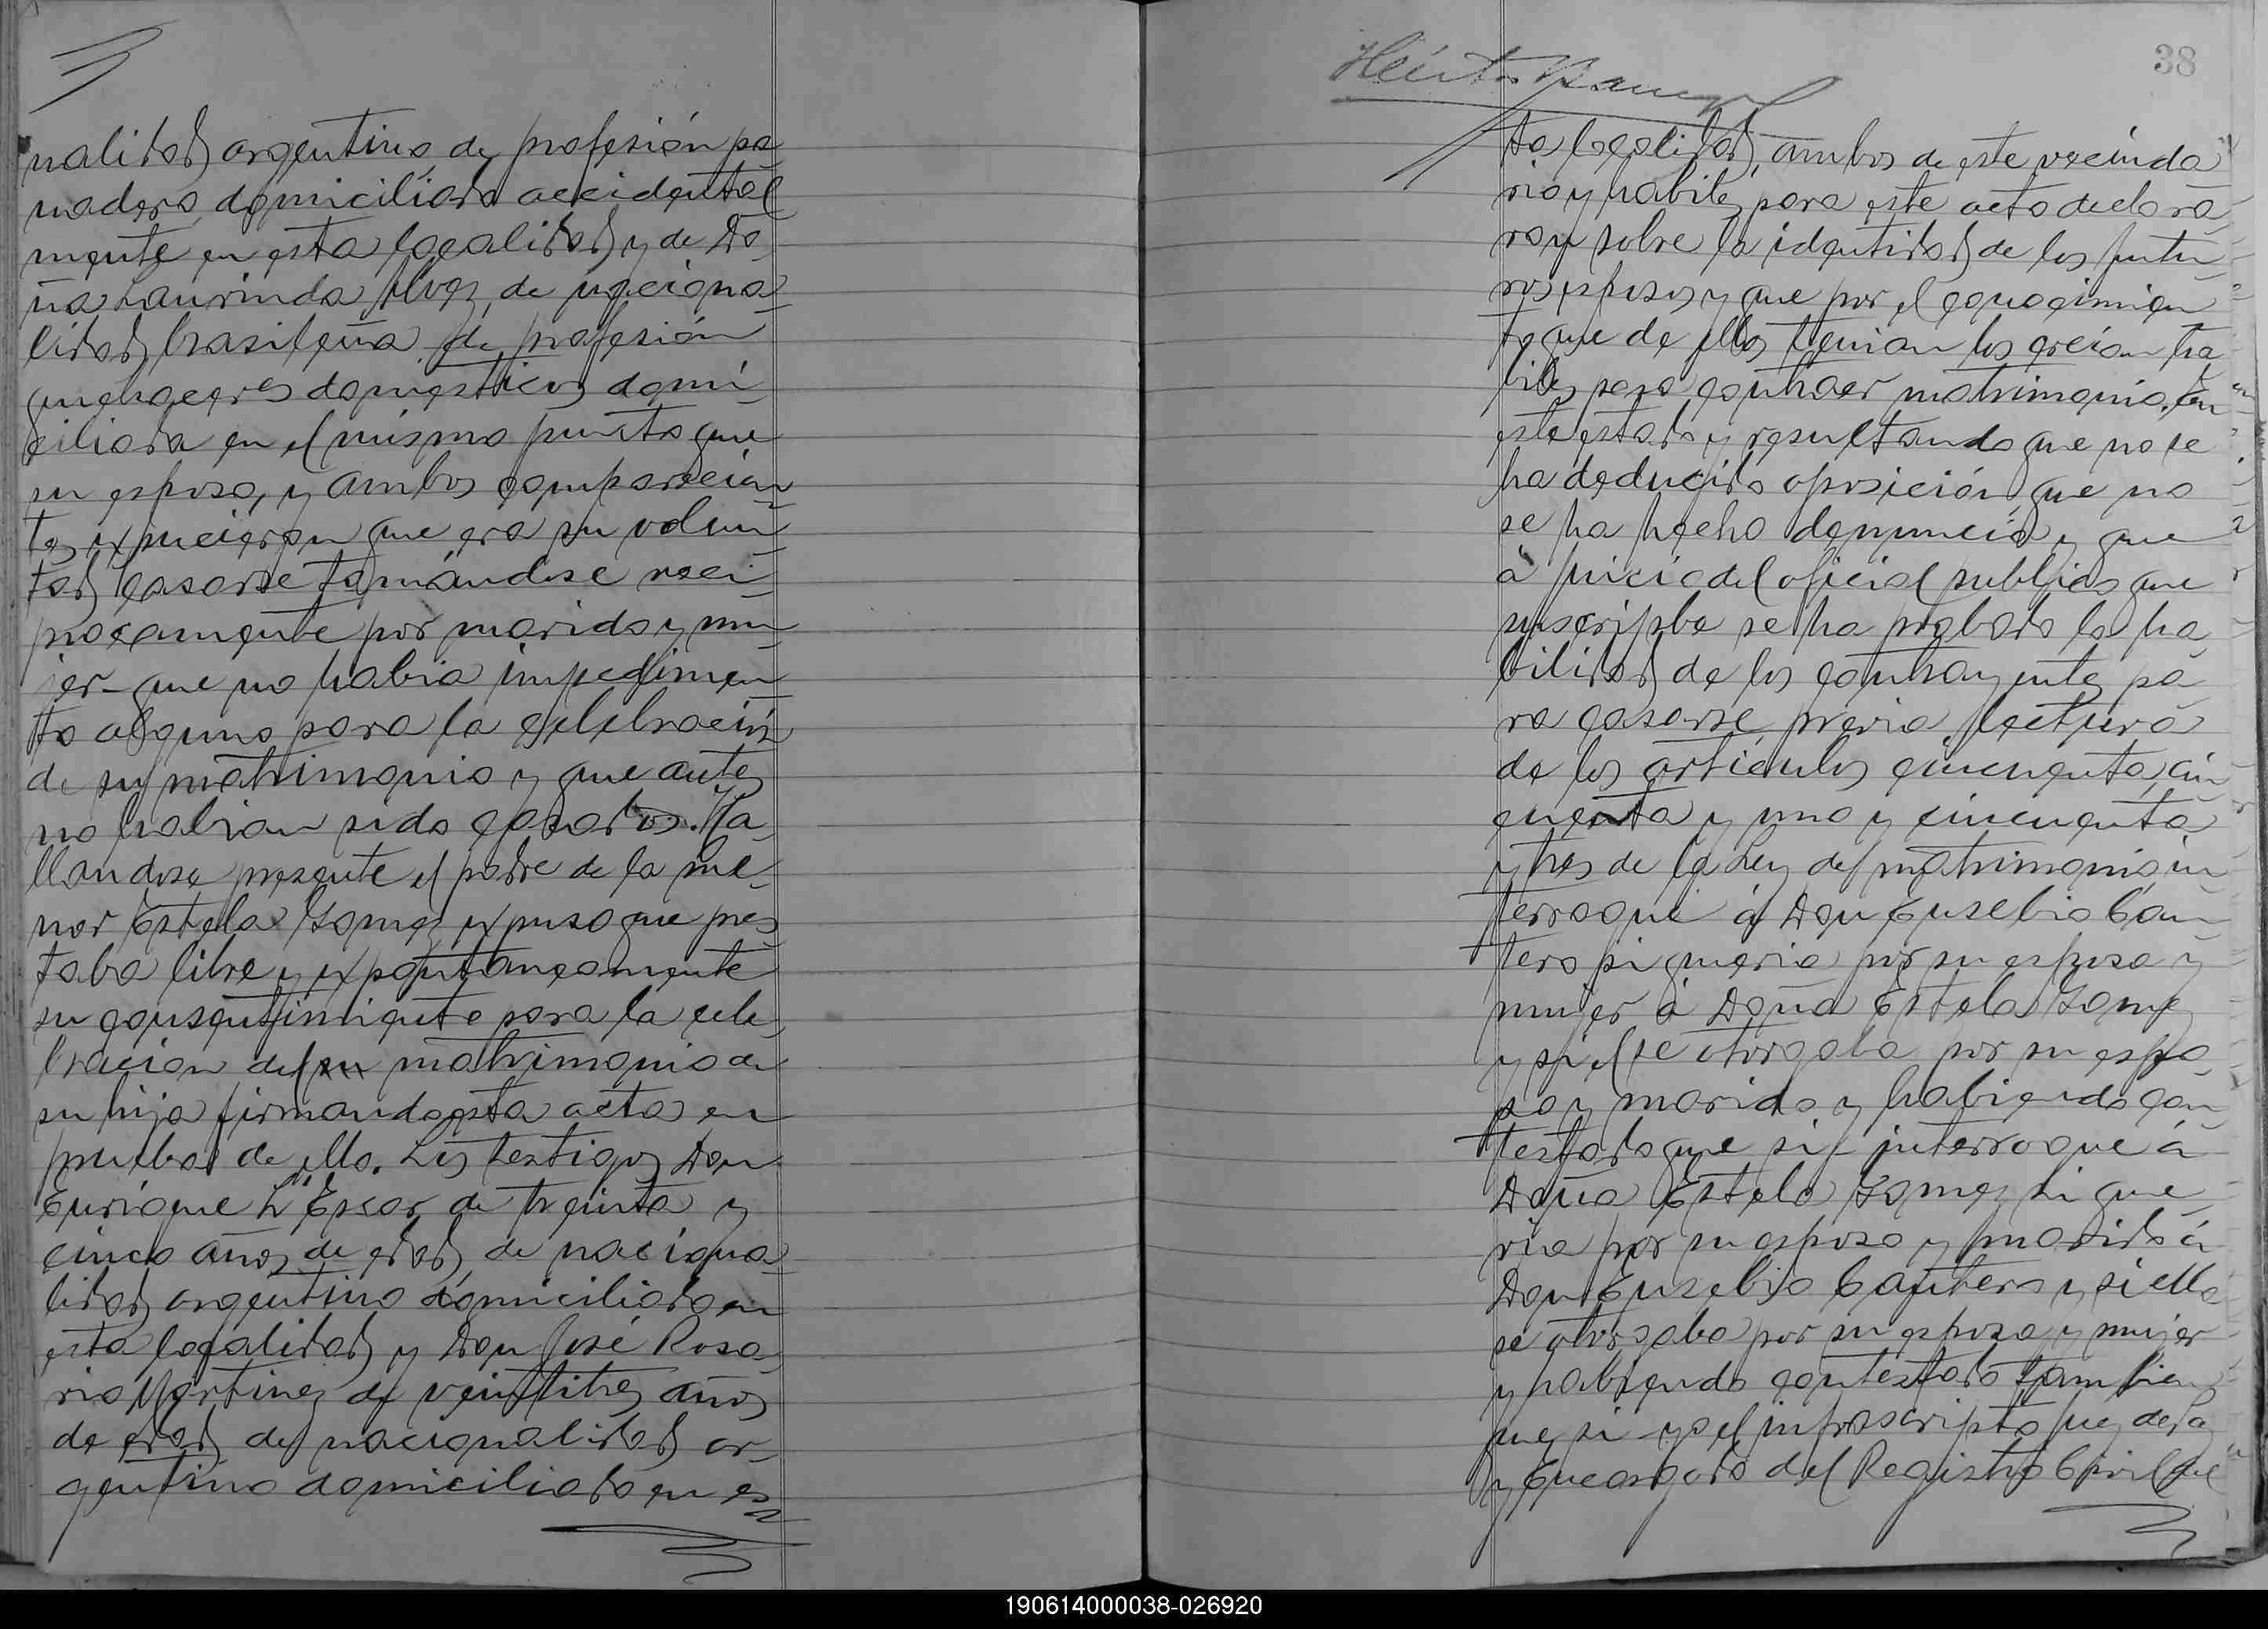 nalidad argentino de profesión pa
nadero, domiciliado accidental
mente en esta localidad y de Do
ña Laurinda Alvez de naciona
lidad brasileña de profesión
quehaceres domésticos domi
ciliada en el mismo punto que
su esposo, y ambos comparecien
tes expucieron que era su volun
tad casarse tomándose reci
procamente por marido y mu
jer - que no habia impedimen
to alguno para la celebración
de su matrimonio y que antes
no habian sido casados. Ha
llandose presente el padre de la me
nor Estela Gomez expuso que pres
taba libre y expontaneamente
su consentimiento para la cele
bración del su matrimonio de
su hija firmando esta acta en
prueba de ello. Los testigos Don
Enrique L' Escor de treinta y
cinco años de edad, de naciona
lidad argentino domiciliado en
esta localidad y Don José Rosa
rio Martinez de veintitres años
de edad de nacionalidad ar
gentino domiciliado en es
38
Héctor
ta localidad, ambos de este vecinda
rio y habiles para este acto declara
ron sobre la identidad de los futu
ros esposos y que por el conocimien
to que de ellos tenian los creian há
biles para contraer matrimonio. En
este estado y resultando que no se
ha deducido oposición que no
se ha hecho denuncia y que
á juicio del oficial publico que
suscripbe se ha probado la ha
bilidad de los contrayentes pa
ra casarse, previa lectura
de los articulos cincuenta, cin
cuenta y uno y cincuenta
y tres de la Ley del matrimonio in
terroqué á Don Eusebio Can
tero si queria por su esposa y
mujer á Doña Estela Gomez
y si el se otorgaba por su espo
so y marido y habiendo con
testado que si - interroque á
Doña Estela Gomez si que
ria por su esposo y marido á
Don Eusebio Cantero y si ella
se otorgaba por su esposa y mujer
y habiendo contestado tambien
que si - yo el infrascripto Juez de Paz
y Encargado del Registro Civil que
190614000038-026920